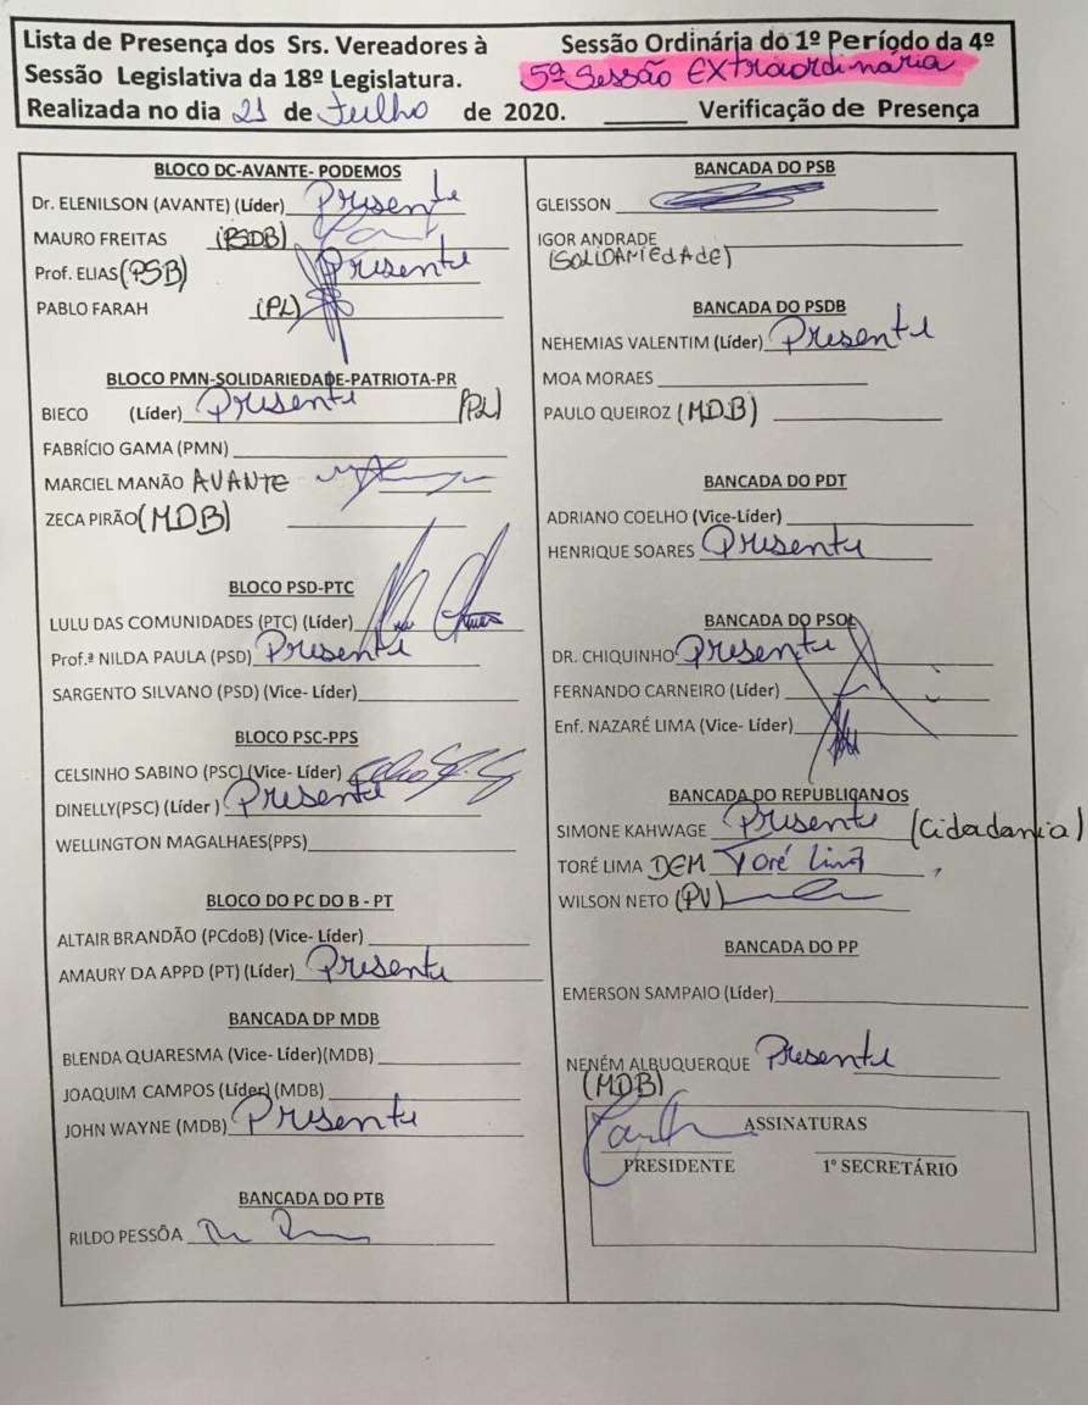 Lista de Presença dos Srs. Vereadores à Sessão Ordinária do 1º Período da 4º
Sessão Legislativa da 18º Legislatura. 5ª Sessão Extraordinária
Realizada no dia 21 de Julho de 2020. ______ Verificação de Presença
BLOCO DC-AVANTE- PODEMOS
Dr. ELENILSON (AVANTE) (Líder) Presente
MAURO FREITAS (PSDB)
Prof. ELIAS (PSB) Presente
PABLO FARAH (PL)
BLOCO PMN-SOLIDARIEDADE-PATRIOTA-PR
BIECO (Líder) Presente (PL)
FABRÍCIO GAMA (PMN)
MARCIEL MANÃO AVANTE
ZECA PIRÃO (MDB)
BLOCO PSD-PTC
LULU DAS COMUNIDADES (PTC) (Líder)
Prof.ª NILDA PAULA (PSD) Presente
SARGENTO SILVANO (PSD) (Vice- Líder)
BLOCO PSC-PPS
CELSINHO SABINO (PSC) (Vice- Líder)
DINELLY(PSC) (Líder ) Presente
WELLINGTON MAGALHAES(PPS)
BLOCO DO PC DO B - PT
ALTAIR BRANDÃO (PCdoB) (Vice- Líder)
AMAURY DA APPD (PT) (Líder) Presente
BANCADA DP MDB
BLENDA QUARESMA (Vice- Líder)(MDB)
JOAQUIM CAMPOS (Líder) (MDB)
JOHN WAYNE (MDB) Presente
BANCADA DO PTB
RILDO PESSÔA
BANCADA DO PSB
GLEISSON
IGOR ANDRADE
(SOLIDARIEdAde)
BANCADA DO PSDB
NEHEMIAS VALENTIM (Líder) Presente
MOA MORAES
PAULO QUEIROZ (MDB)
BANCADA DO PDT
ADRIANO COELHO (Vice-Líder)
HENRIQUE SOARES Presente
BANCADA DO PSOL
DR. CHIQUINHO Presente
FERNANDO CARNEIRO (Líder)
Enf. NAZARÉ LIMA (Vice- Líder)
BANCADA DO REPUBLICANOS
SIMONE KAHWAGE Presente (Cidadania)
TORÉ LIMA DEM Toré Lima
WILSON NETO (PV)
BANCADA DO PP
EMERSON SAMPAIO (Líder)
NENÉM ALBUQUERQUE Presente
(MDB)
ASSINATURAS
PRESIDENTE 1º SECRETÁRIO